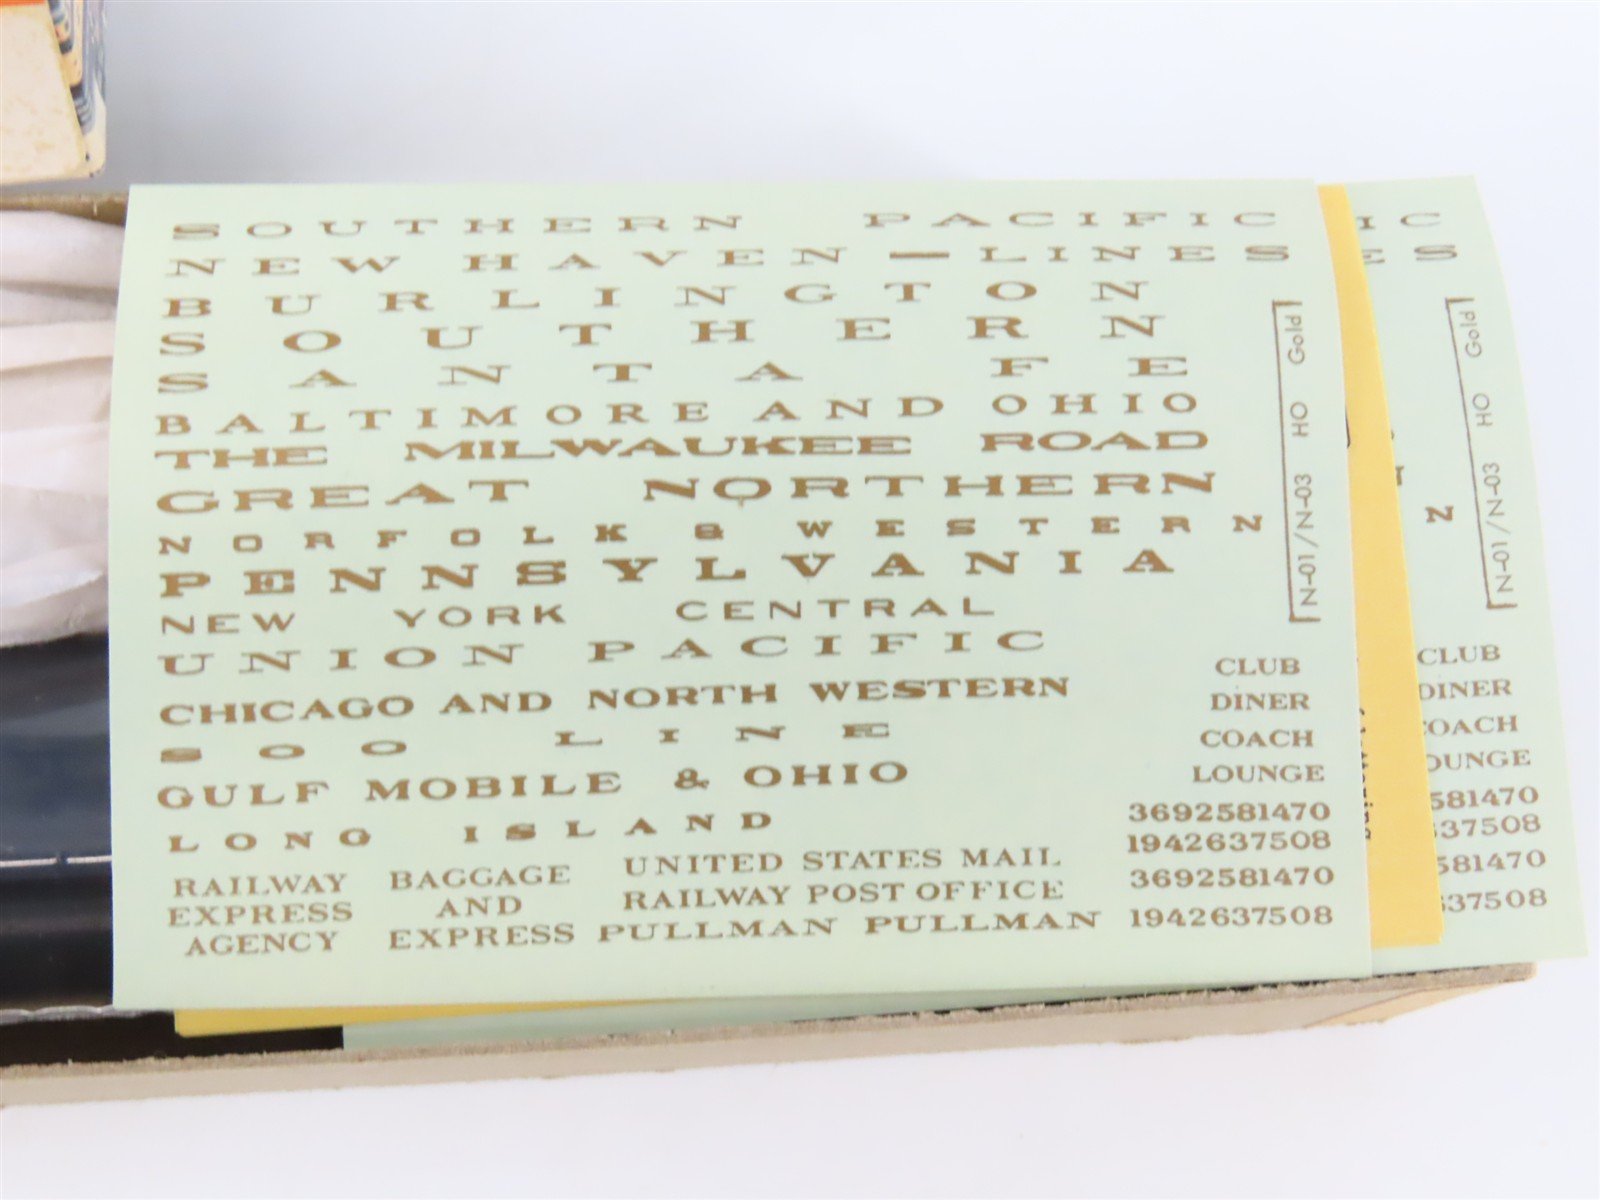 SOUTHERN PACIFIC
NEW HAVEN — LINES
BURLINGTON
SOUTHERN
SANTA FE
BALTIMORE AND OHIO
THE MILWAUKEE ROAD
GREAT NORTHERN
NORFOLK & WESTERN
PENNSYLVANIA
NEW YORK CENTRAL
UNION PACIFIC
CHICAGO AND NORTH WESTERN
SOO LINE
GULF MOBILE & OHIO
LONG ISLAND
RAILWAY
EXPRESS
AGENCY
BAGGAGE
AND
EXPRESS
UNITED STATES MAIL
RAILWAY POST OFFICE
PULLMAN PULLMAN
N-01/N-03 HO Gold
CLUB
DINER
COACH
LOUNGE
3692581470
1942637508
3692581470
1942637508
IC
ES
N
N-01/N-03 HO Gold
CLUB
DINER
COACH
OUNGE
581470
37508
581470
37508